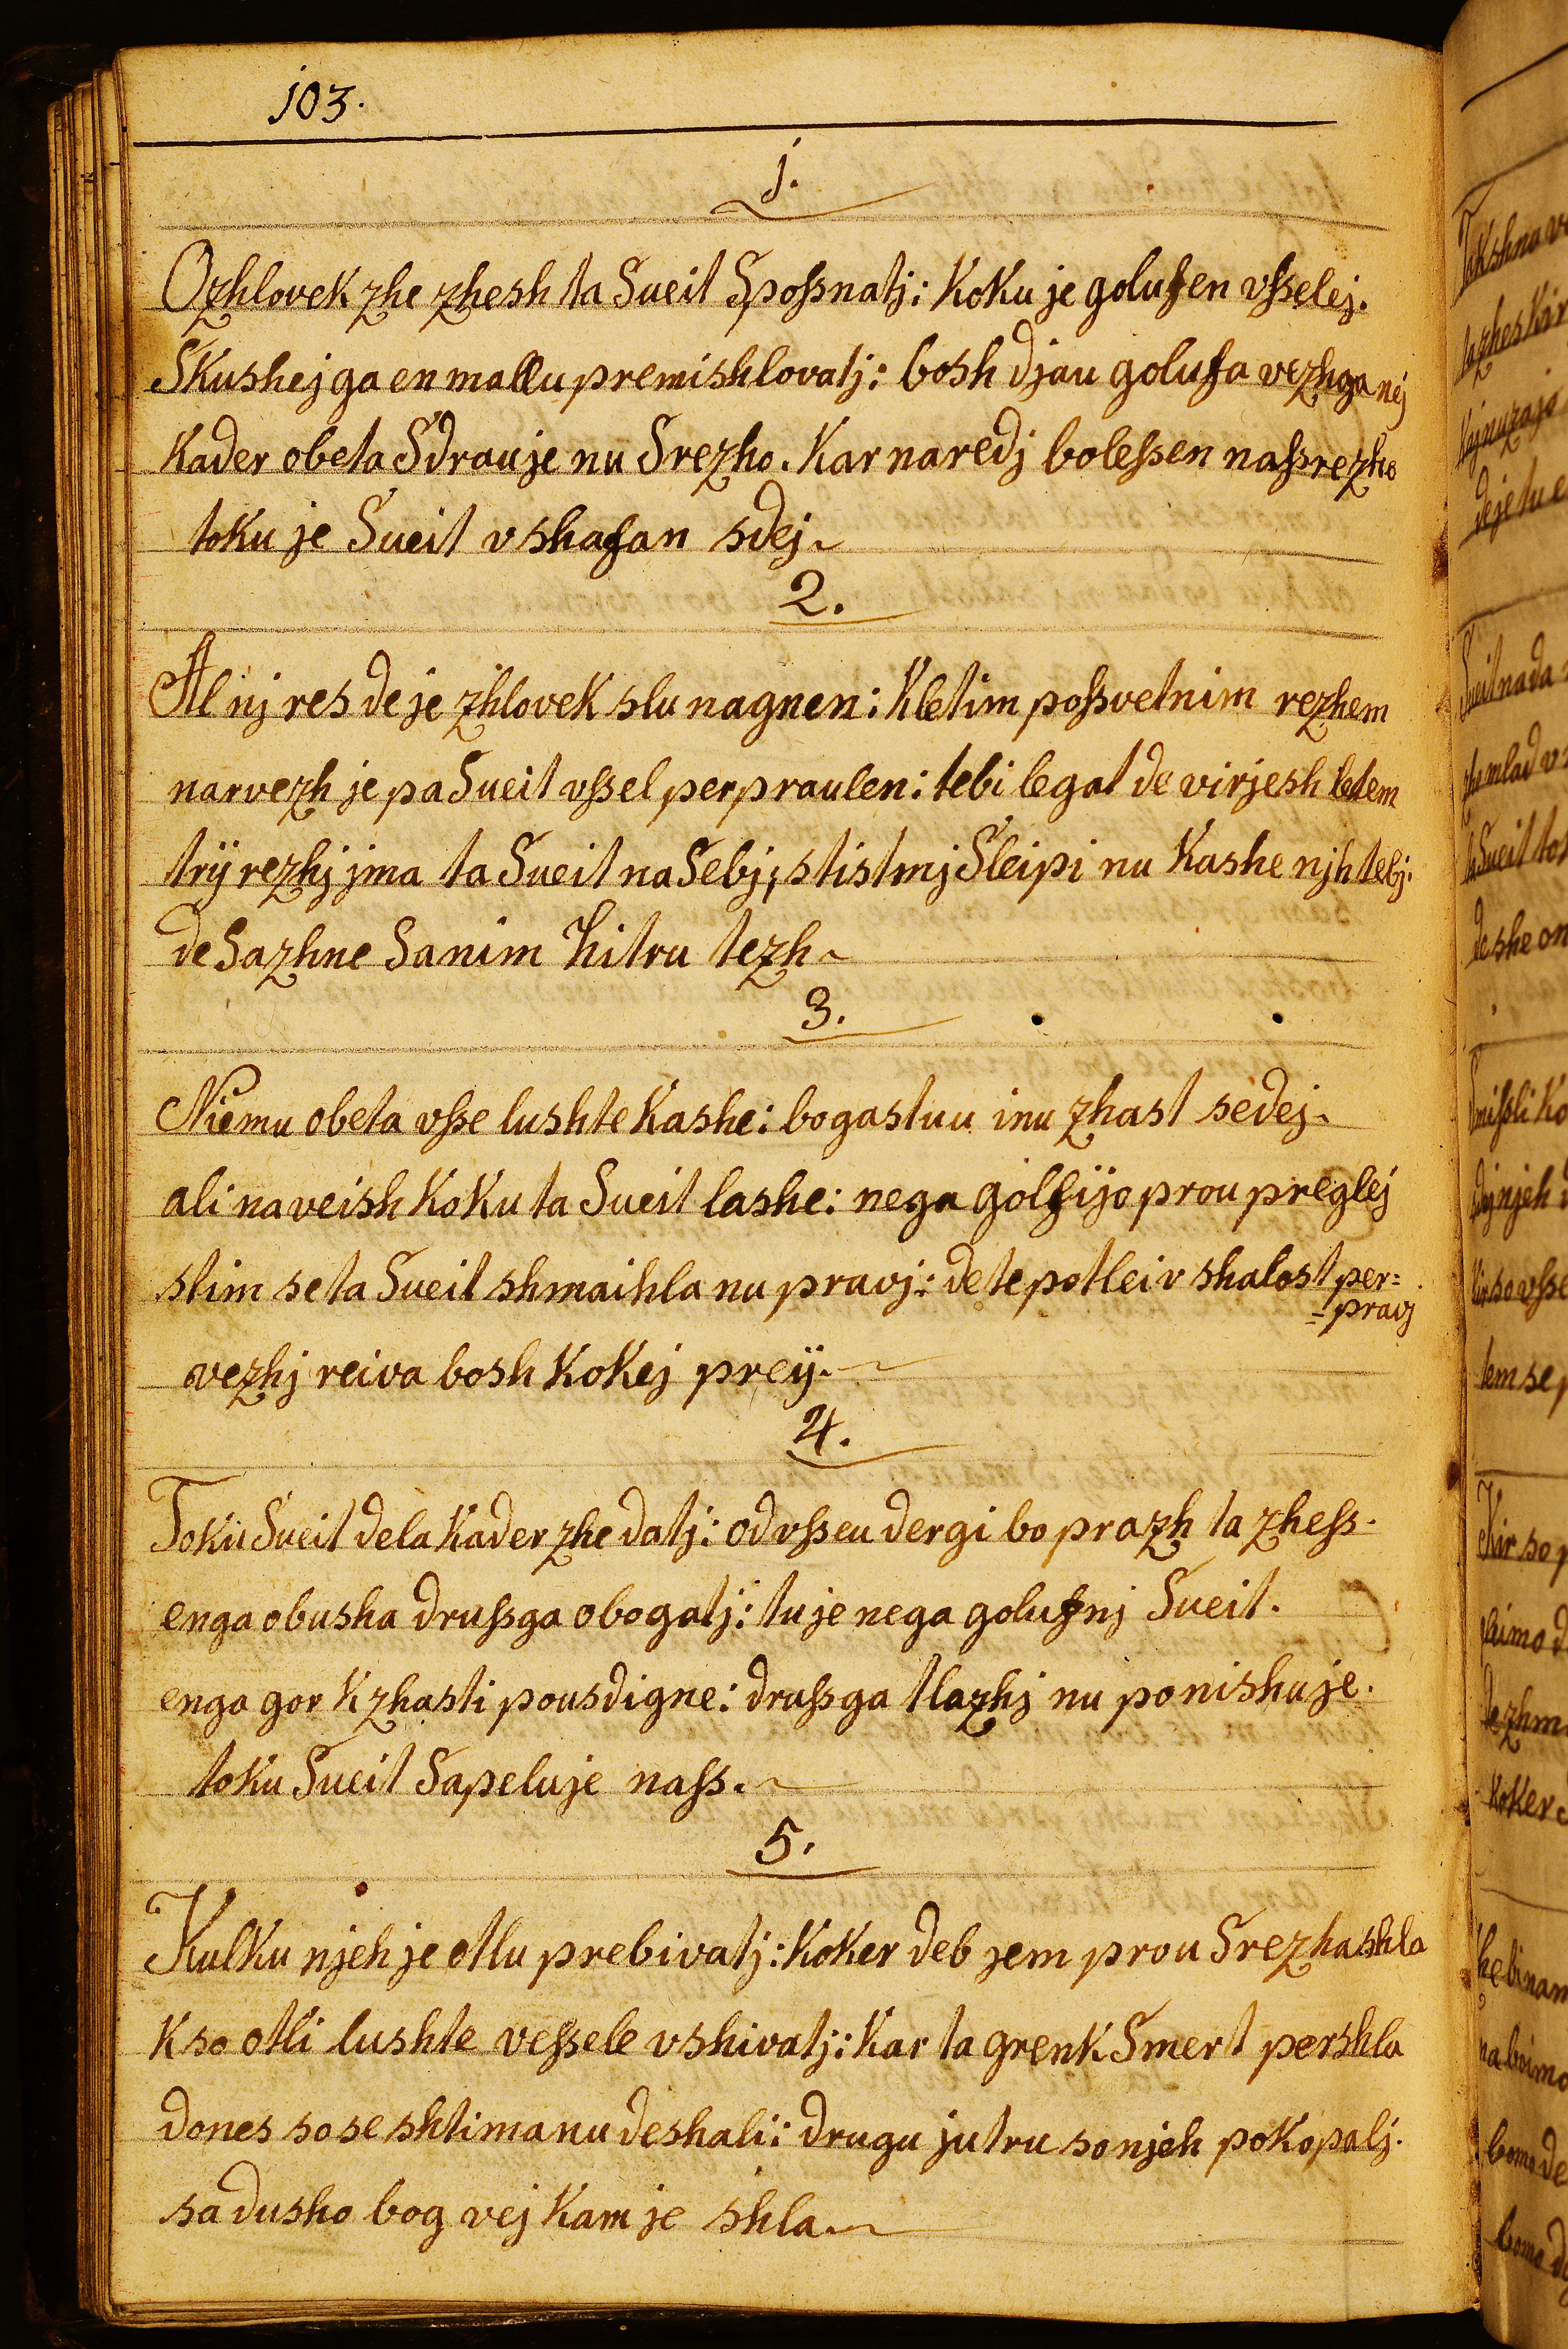 103.
1.
O zhlovek zhe zhesh ta Sueit Spoſsnatj: Koku je golufen vſselej.
Skushej ga en mallu premishlovatj: bosh djau golufa vezhga nej
Kader obeta Sdrauje nu Srezho. Kar naredj boleſsen naſsrezho
toku je Sueit vshafan sdej
2.
Al nj res de je zhlovek slu nagnen: Kletim poſsvetnim rezhem
narvezh je pa Sueit vſsel perpraulen: tebi legat de virjesh letem
trÿ rezhj jma ta Sueit na Sebj; stistmj Sleipi nu Kashe njh tebj.
de Sazhne Sanim hitru tezh
3.
Niemu obeta vſse lushte Kashe: bogastuu inu zhast sedej.
ali naveish Koku ta Sueit lashe: nega golfÿo prou preglej
stim se ta Sueit shmaihla nu pravj: de te potlei v shalost per=
=pravj
vezhj reiva bosh Kokej preÿ.
4.
Toku Sueit dela Kader zhe datj: od vſseu dergi bo prazh ta zheſs.
enga obusha druſsga obogatj: tu je nega golufnj Sueit.
enga gor K zhasti pousdigne: druſsga tlazhj nu ponishuje.
toku Sueit Sapeluje naſs.
5.
Kulku njeh je otlu prebivatj: Koker deb jem prou Srezha shla
K so otli lushte veſsele vshivatj: Kar ta grenk Smert pershla
dones so se shtimanu deshali: drugu jutru so njeh pokopalj.
sa dusho bog vej Kam je shla.